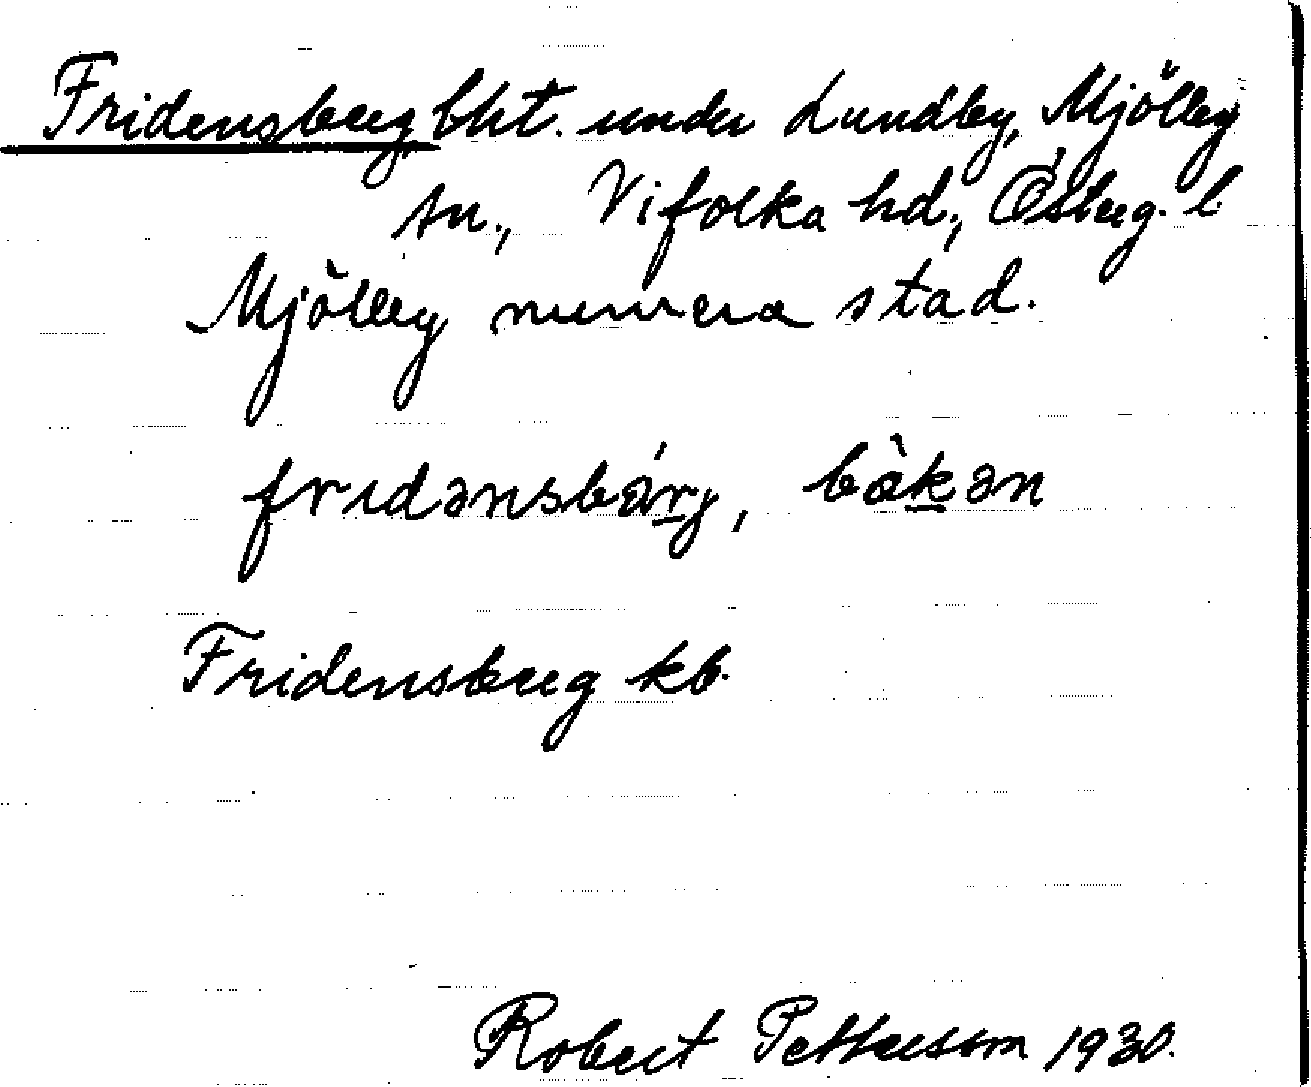 Fridensberg bht. under Lundby, Mjölby
sn., Vifolka hd., Ösberg. l.
Mjölby numera stad.
fridənsbárj, bàkən
Fridensberg kb.
Robert Pettersson 1930.